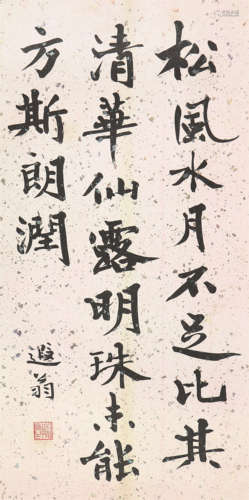 松風水月不足比其
清華仙露明珠未能
方斯朗潤
遐翁